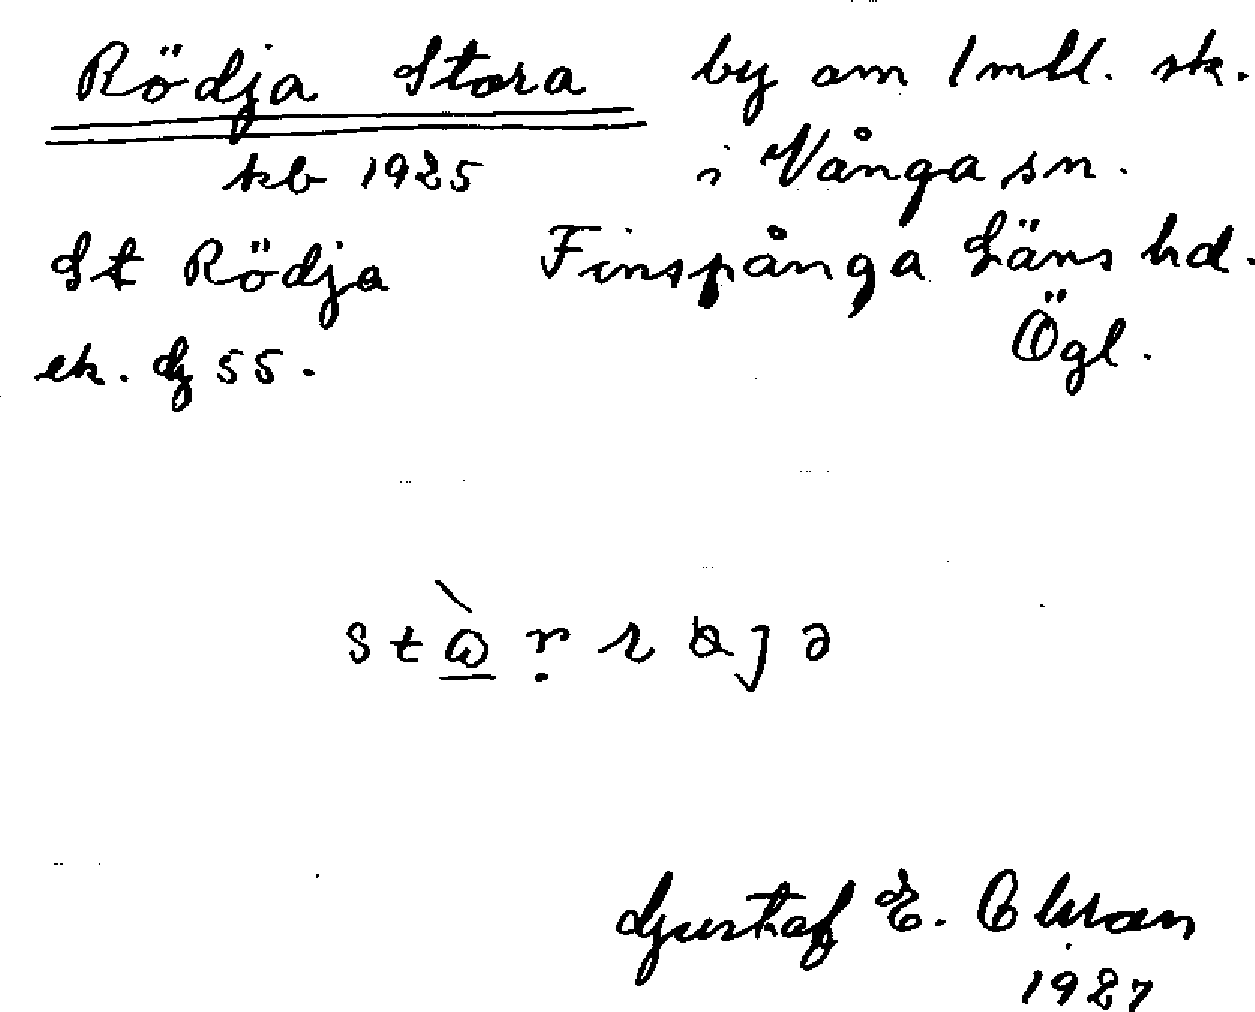 Rödja Stora by om 1 mtl. sk.
kb 1925 i Vånga sn.
St Rödja Finspånga Läns hd.
ek. dz 55. Ögl.
Gustaf E.
1927